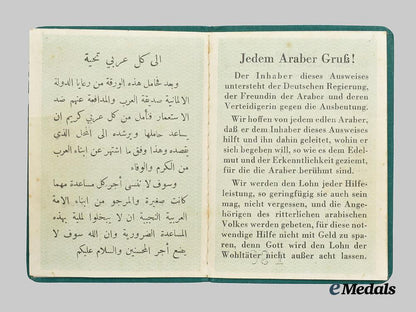 الى كل عربي تحية
وبعد فحامل هذه الورقة من رعايا الدولة
الالمانية صديقة العرب والمدافعة عنهم ضد
الاستعمار فنأمل من كل عربي كريم ان
يساعد حاملها ويرشده الى المحل الذي
يقصده وهذا وفق ما اشتهر عن ابناء العرب
من الكرم والوفاء
وسوف لا ننسى أجر كل مساعدة مهما
كانت صغيرة والمرجو من ابناء الامة
العربية النجيبة ان لا يبخلوا للمليّة بهذه
المساعدة الضرورية وان الله سوف لا
يضع أجر المحسنين والسلام عليكم
Jedem Araber Gruß!
Der Inhaber dieses Ausweises
untersteht der Deutschen Regierung,
der Freundin der Araber und deren
Verteidigerin gegen die Ausbeutung.
Wir hoffen von jedem edlen Araber,
daß er dem Inhaber dieses Ausweises
hilft und ihn dahin geleitet, wohin er
sich begeben will, so wie es dem Edel-
mut und der Erkenntlichkeit geziemt,
für die die Araber berühmt sind.
Wir werden den Lohn jeder Hilfe-
leistung, so geringfügig sie auch sein
mag, nicht vergessen, und die Ange-
hörigen des ritterlichen arabischen
Volkes werden gebeten, für diese not-
wendige Hilfe nicht mit Geld zu spa-
ren, denn Gott wird den Lohn der
Wohltäter nicht außer acht lassen.
eMedals